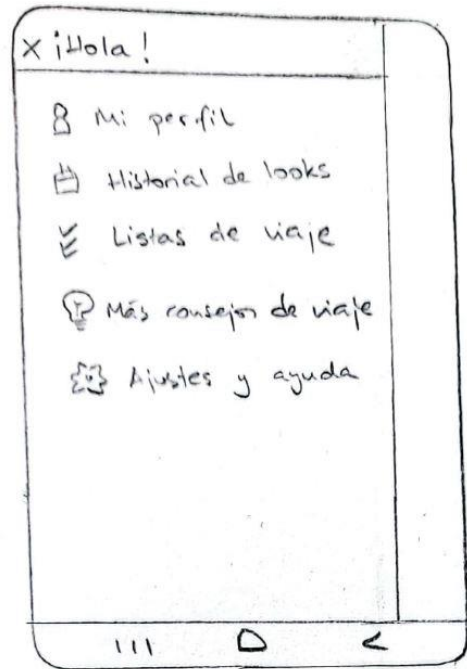 × ¡Hola!
Mi perfil
Historial de looks
Listas de viaje
Más consejos de viaje
Ajustes y ayuda